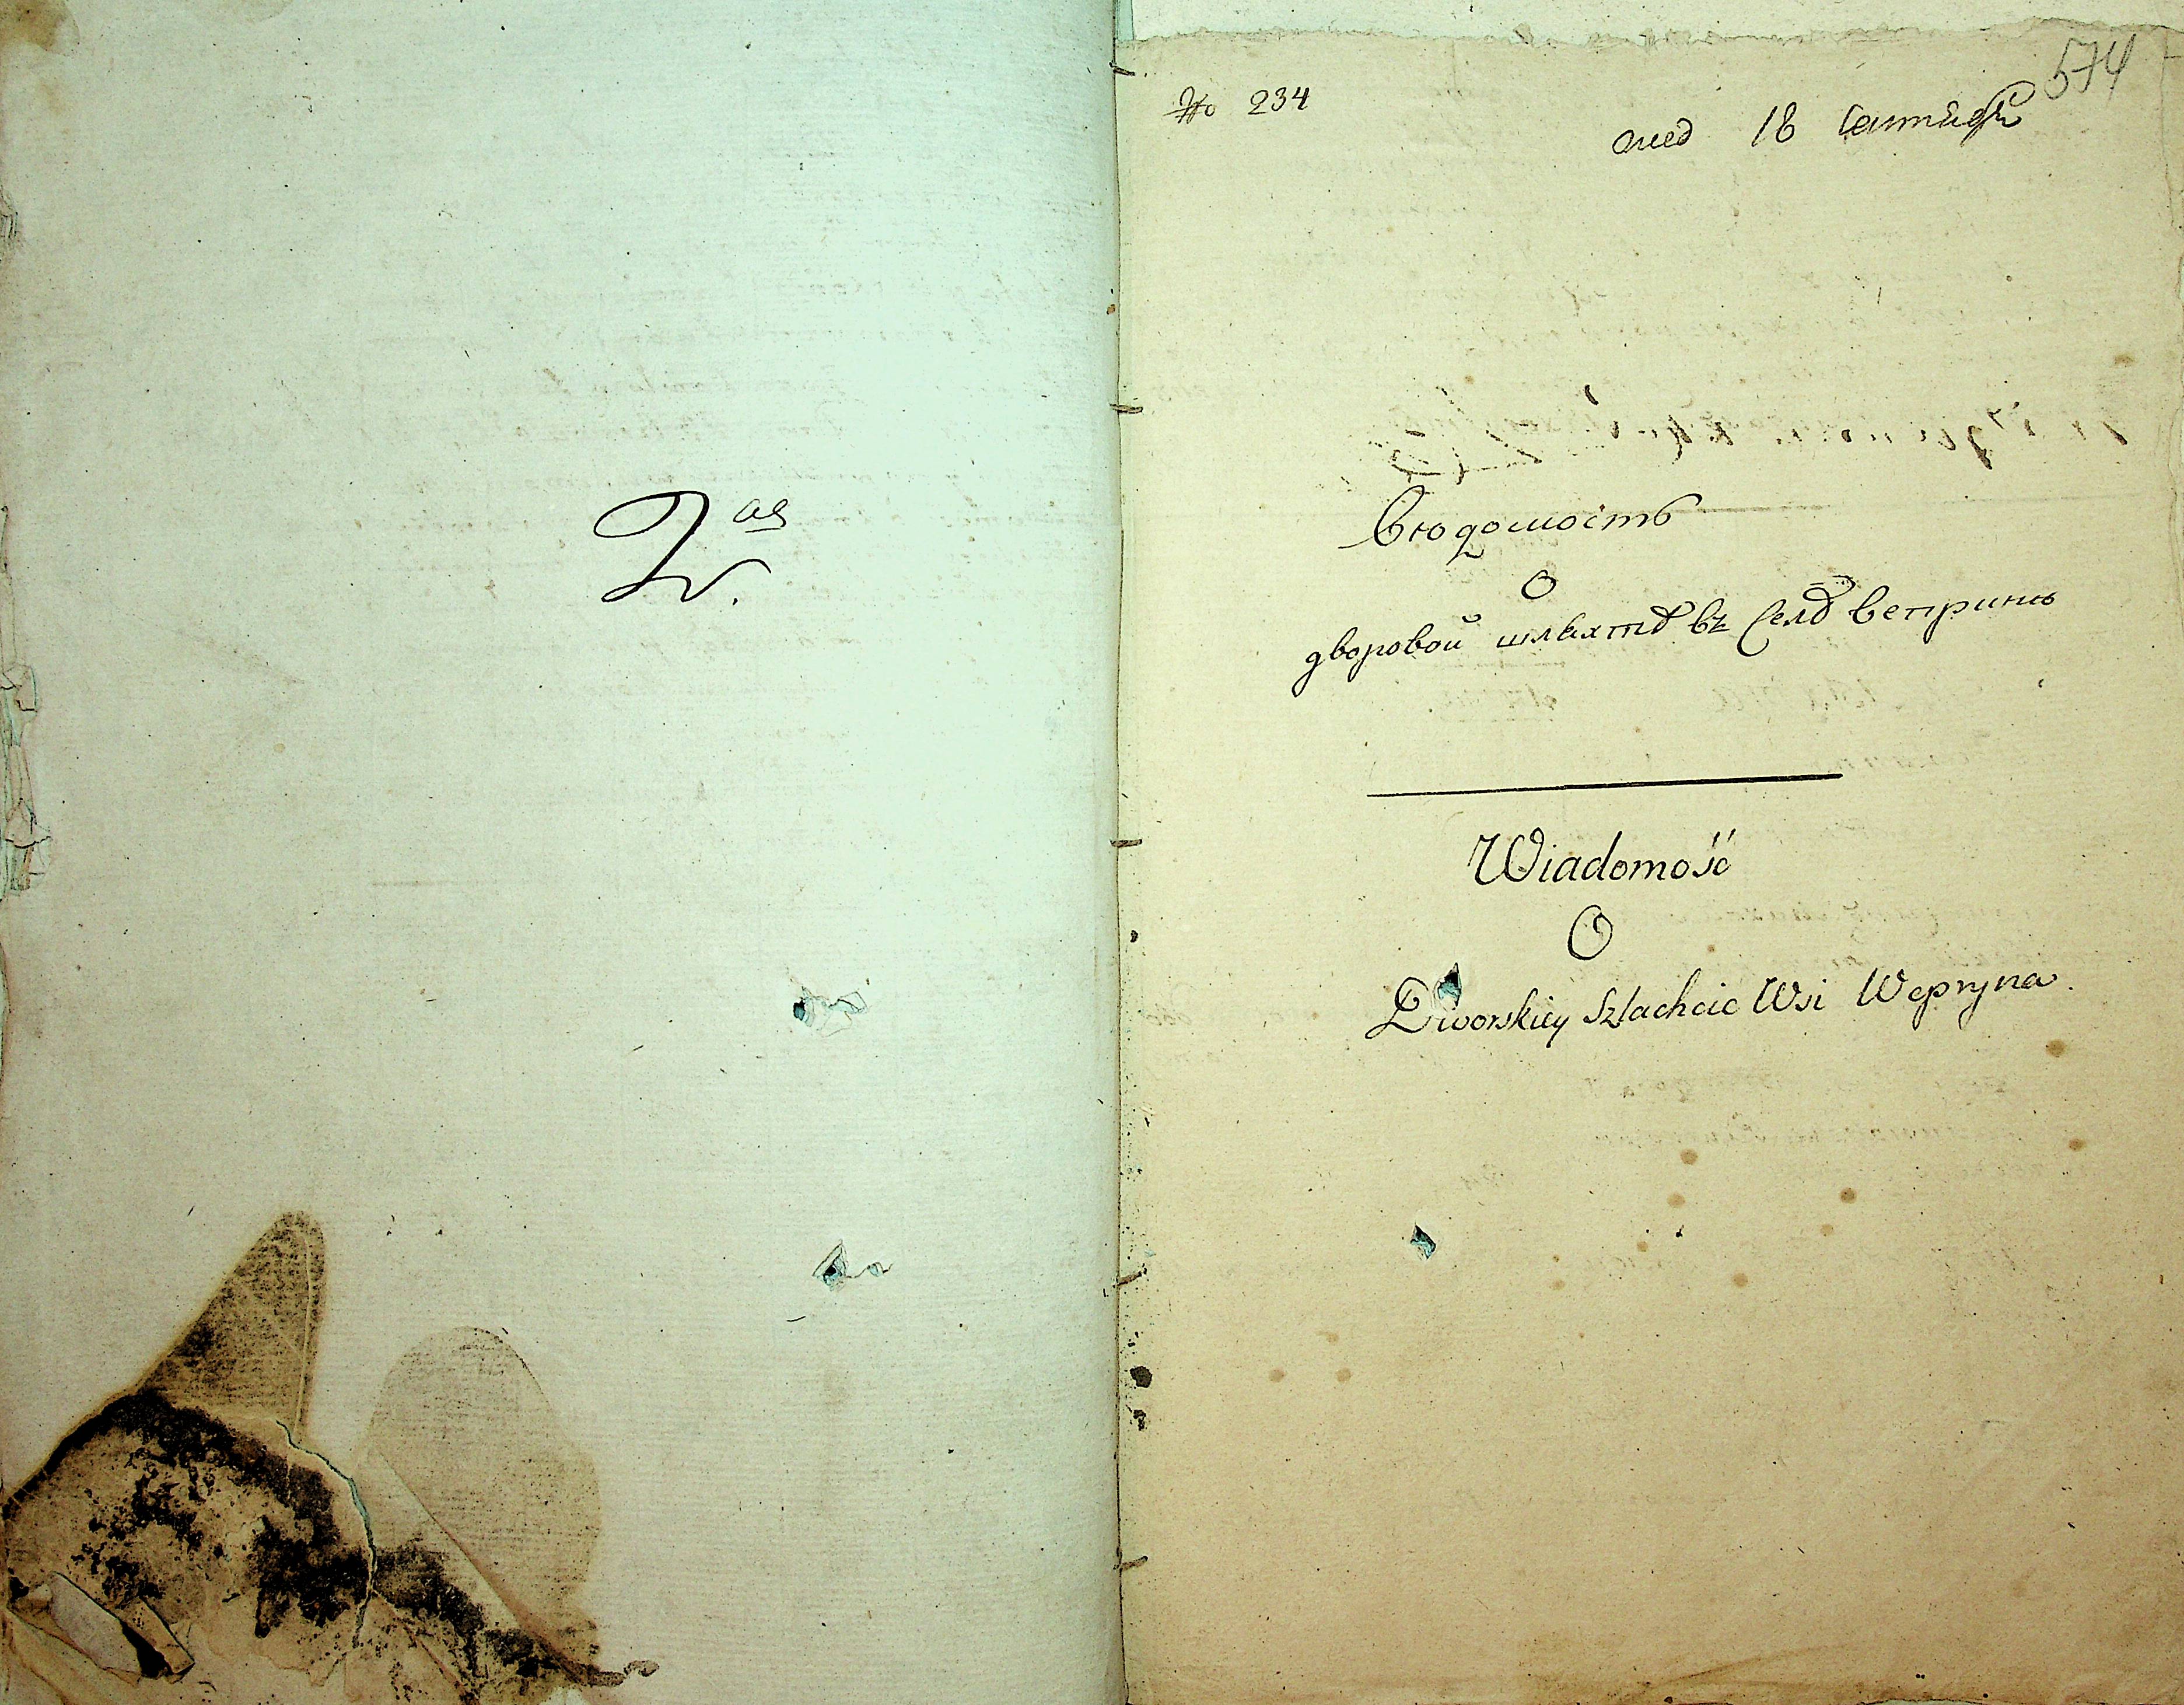 2ая
№ 234
574
18 Сентября
Вѣдомость
О
дворовой шляхтѣ въ Селѣ вепринѣ
Wiadomość
O
Dworskiey Szlachcie Wsi Wepryna.